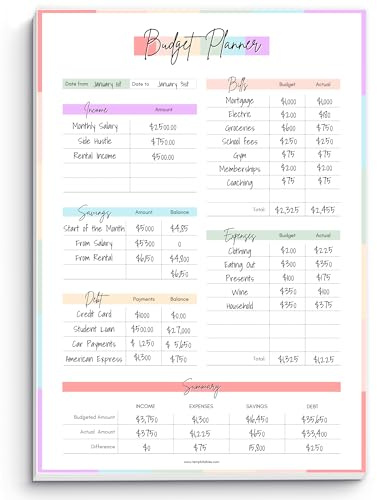 Budget Planner
Date from January 1st Date to January 31st
Income Amount
Monthly Salary $2500.00
Side Hustle $750.00
Rental Income $500.00
Savings Amount Balance
Start of the Month $5000 $4.85
From Salary $5300 0
From Rental $6,150 $4,800
$6,150
Debt Payments Balance
Credit Card $1000 $0.00
Student Loan $500.00 $27,000
Car Payments $ 1,250 $ 5,650
American Express $1,300 $750
Bills Budget Actual
Mortgage $1,000 $1,000
Electric $200 $180
Groceries $600 $750
School Fees $250 $250
Gym $75 $75
Memberships $200 $200
Coaching $75 $75
Total: $2,325 $2,455
Expenses Budget Actual
Clothing $200 $225
Eating Out $300 $350
Presents $100 $175
Wine $350 $100
Household $350 $375
Total: $1,325 $1,225
Summary
INCOME EXPENSES SAVINGS DEBT
Budgeted Amount $3,750 $1,300 $16,450 $35,650
Actual Amount $3750 $1,225 $650 $33,400
Difference $0 $75 15,800 $250